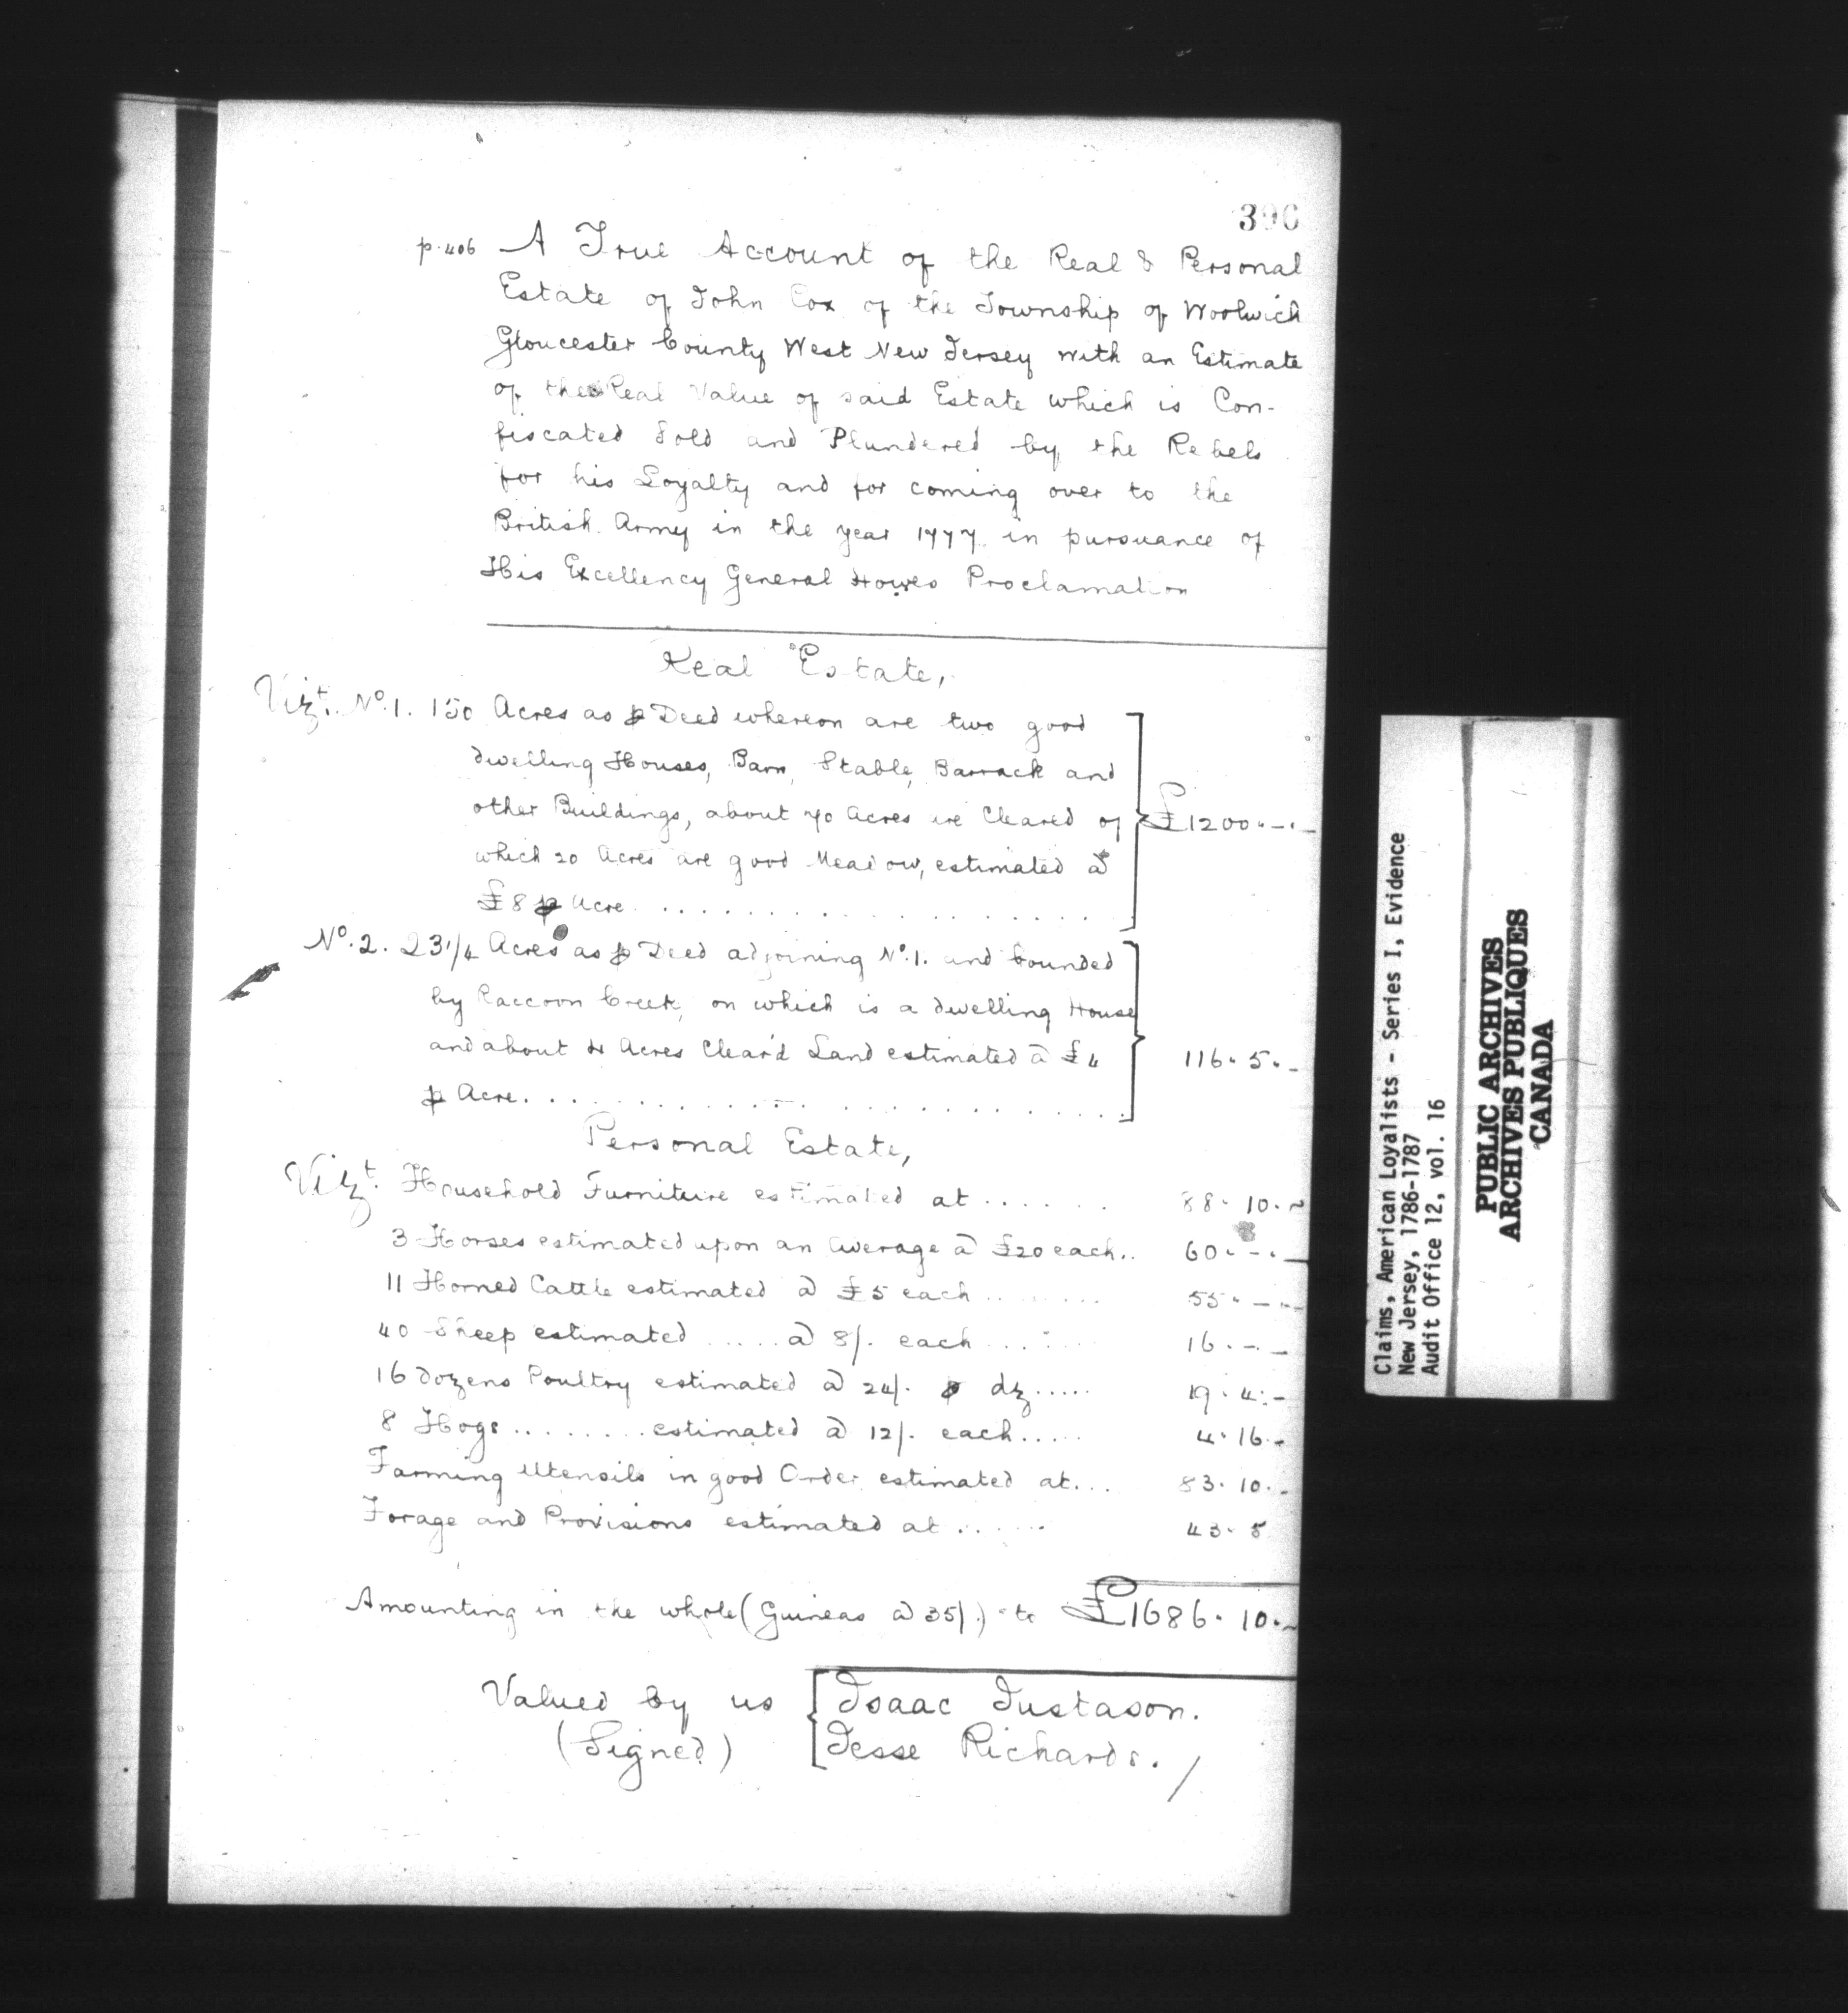 p. 406 A True Account of the Real & Personal
Estate of John Cox of the Township of Woolwich
Gloucester County West New Jersey with an Estimate
of the Real Value of said Estate which is Con-
fiscated Sold and Plundered by the Rebels
for his Loyalty and for coming over to the
British Army in the year 1777 in pursuance of
His Excellency General Howes Proclamation
Real Estate,
Vizt. No. 1. 150 Acres as p Deed whereon are two good
dwelling Houses, Barn, Stable, Barrack and
other Buildings, about 70 Acres are Cleared of £1200.-.-
which 20 Acres are good Meadow, estimated @
£8 p Acre..................
No. 2. 23 1/4 Acres as p Deed adjoining No. 1. and bounded
by Raccoon Creek, on which is a dwelling House
and about 4 Acres Clear'd Land estimated @ £4 116. 5. -
p Acre...................
Personal Estate,
Vizt. Household Furniture estimated at...... 88. 10. -
3 Horses estimated upon an Average @ £20 each.. 60. - . -
11 Horned Cattle estimated @ £5 each........ 55. - . -
40 Sheep estimated.....@ 8/. each...... 16. - . -
16 dozens Poultry estimated @ 24/. p dz..... 19. 4. -
8 Hogs.........estimated @ 12/. each..... 4. 16. -
Farming Utensils in good Order estimated at... 83. 10. -
Forage and Provisions estimated at...... 43. 5
Amounting in the whole (Guineas @ 35/.) to £1686. 10. -
Valued by us Isaac Justason.
(Signed) Jesse Richards./
Claims, American Loyalists - Series I, Evidence
New Jersey, 1786-1787
Audit Office 12, vol. 16
PUBLIC ARCHIVES
ARCHIVES PUBLIQUES
CANADA